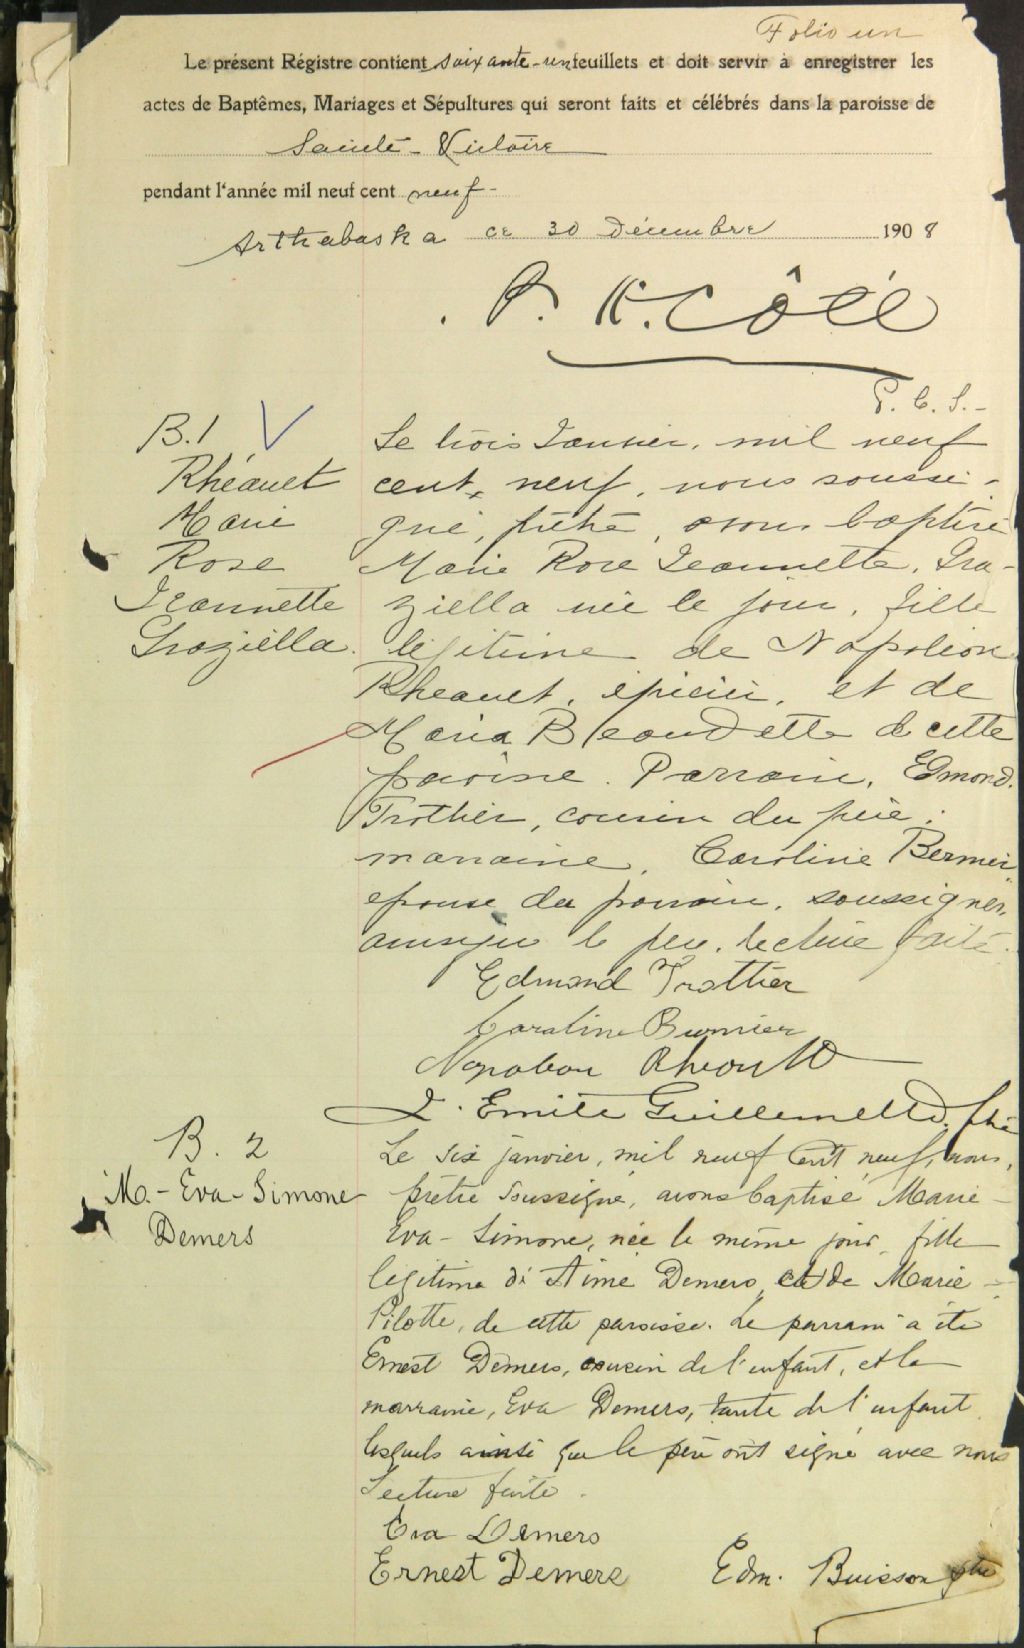 Folio un
Le présent Régistre contient soixante-un feuillets et doit servir à enregistrer les
actes de Baptêmes, Mariages et Sépultures qui seront faits et célébrés dans la paroisse de
Sainte-Victoire
pendant l'année mil neuf cent neuf-
Arthabaska ce 30 Décembre 1908
P. H. Côté
P. C. S.-
B.1
Rhéault
Marie
Rose
Jeannette
Graziella.
Le trois Janvier, mil neuf
cent, neuf, nous soussi-
gné, prêtre, avons baptisé
Marie Rose Jeannette, Gra-
ziella née le jour, fille
légitime de Napoléon
Rheault, épicier, et de
Maria Beaudette de cette
paroisse. Parrain, Edmond
Trothier, cousin du père;
marraine, Caroline Bernier
epouse du parrain, soussignés,
ainsi que le père. lecture faite.
Edmond Trottier
Caroline Bernier
Napoleon Rheault
J. Emile Guillemette, ptre
B. 2
M.-Eva-Simone
Demers
Le six janvier, mil neuf cent neuf, nous,
prêtre soussigné, avons baptisé Marie-
Eva-Simone, née le même jour, fille
legitime de Aimé Demers et de Marie
Pilotte, de cette paroisse. Le parrain a été
Ernest Demers, cousin de l'enfant, et la
marraine, Eva Demers, tante de l'enfant
lesquels ainsi que le père ont signé avec nous
Lecture faite.
Eva Demers
Ernest Demers Edm. Buisson ptre